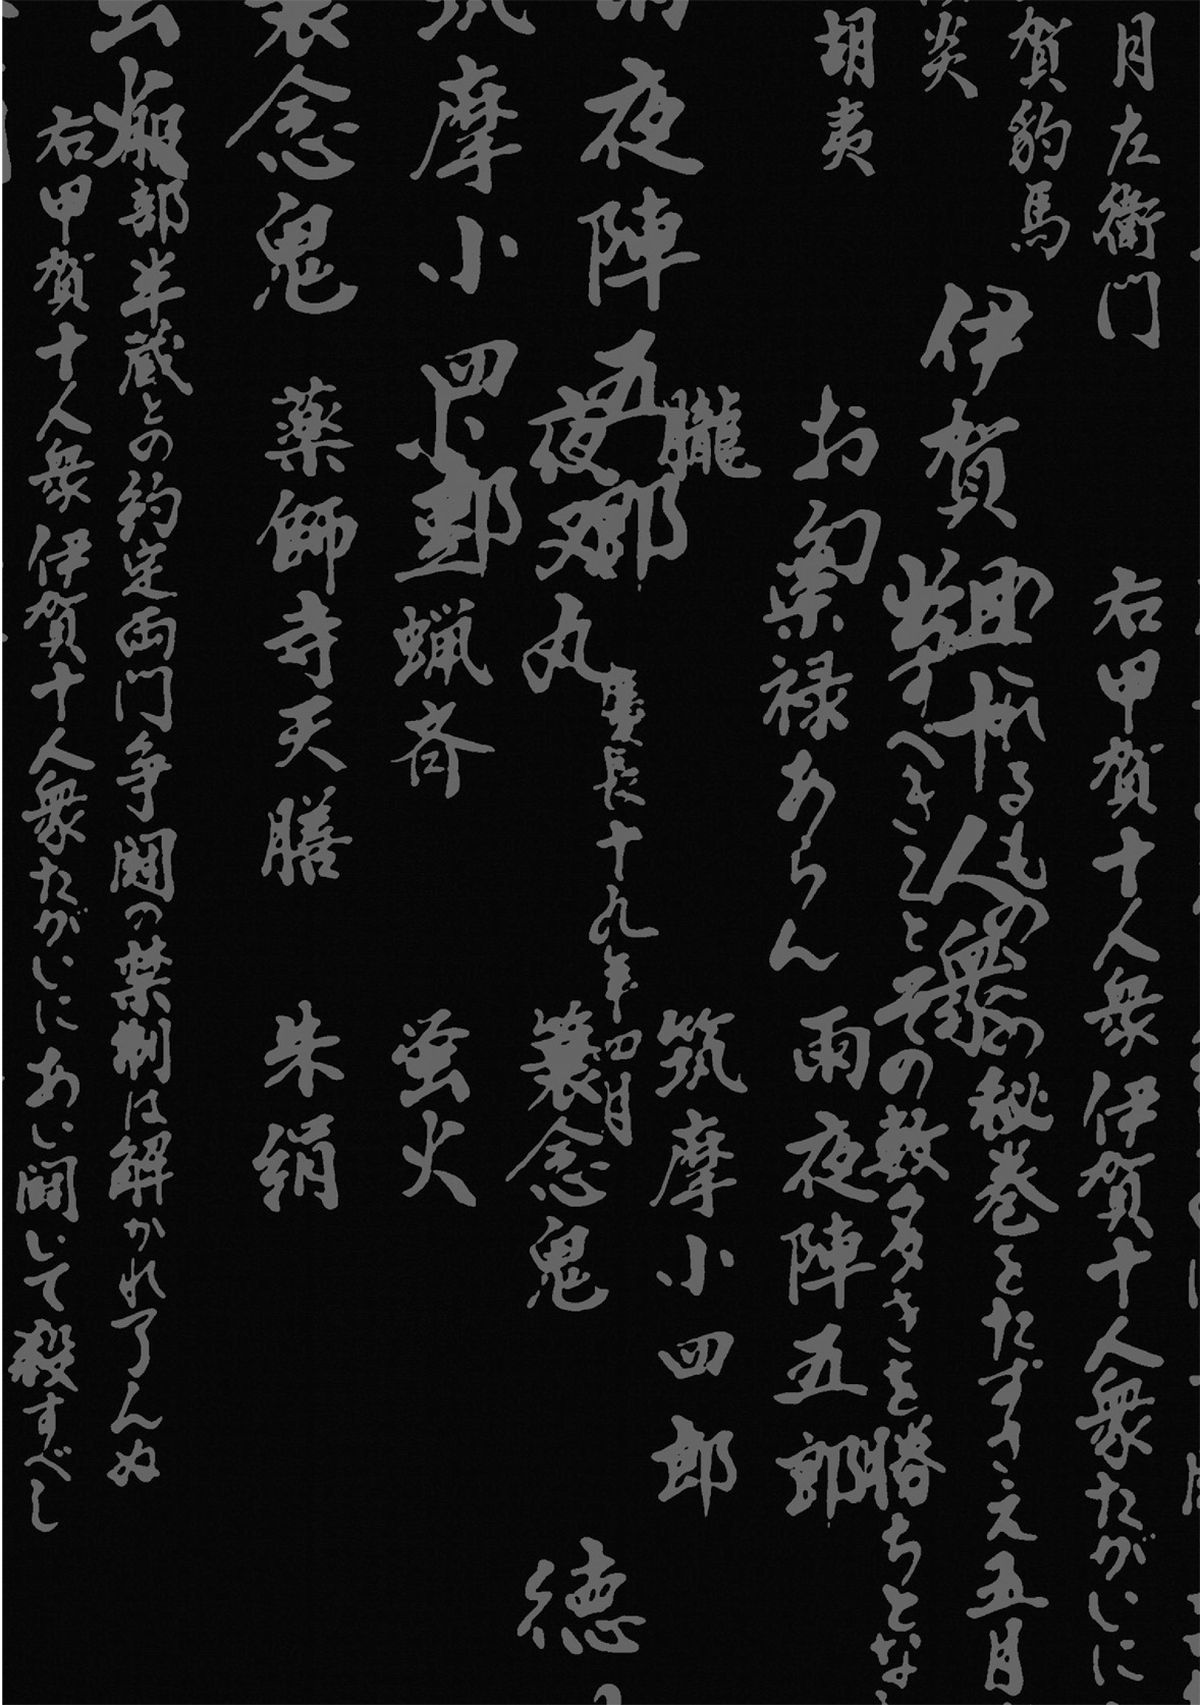 月左衛門
右甲賀十人衆伊賀十人衆たがいに
賀豹馬
るもの
の秘巻をたずさえ五月
炎
伊賀
十人衆
すべきことその数多きを勝ちとな
胡夷
お
禄あらん
雨夜陣五郎
朧
筑摩小四郎
夜陣五郎
慶長十九年四月
夜叉丸
簑念鬼
徳
摩小四郎
小豆蝋斉
蛍火
念鬼
薬師寺天膳
朱絹
服部半蔵との約定両門争闘の禁制は解かれ了んぬ
右甲賀十人衆伊賀十人衆たがいにあい闘いて殺すべし